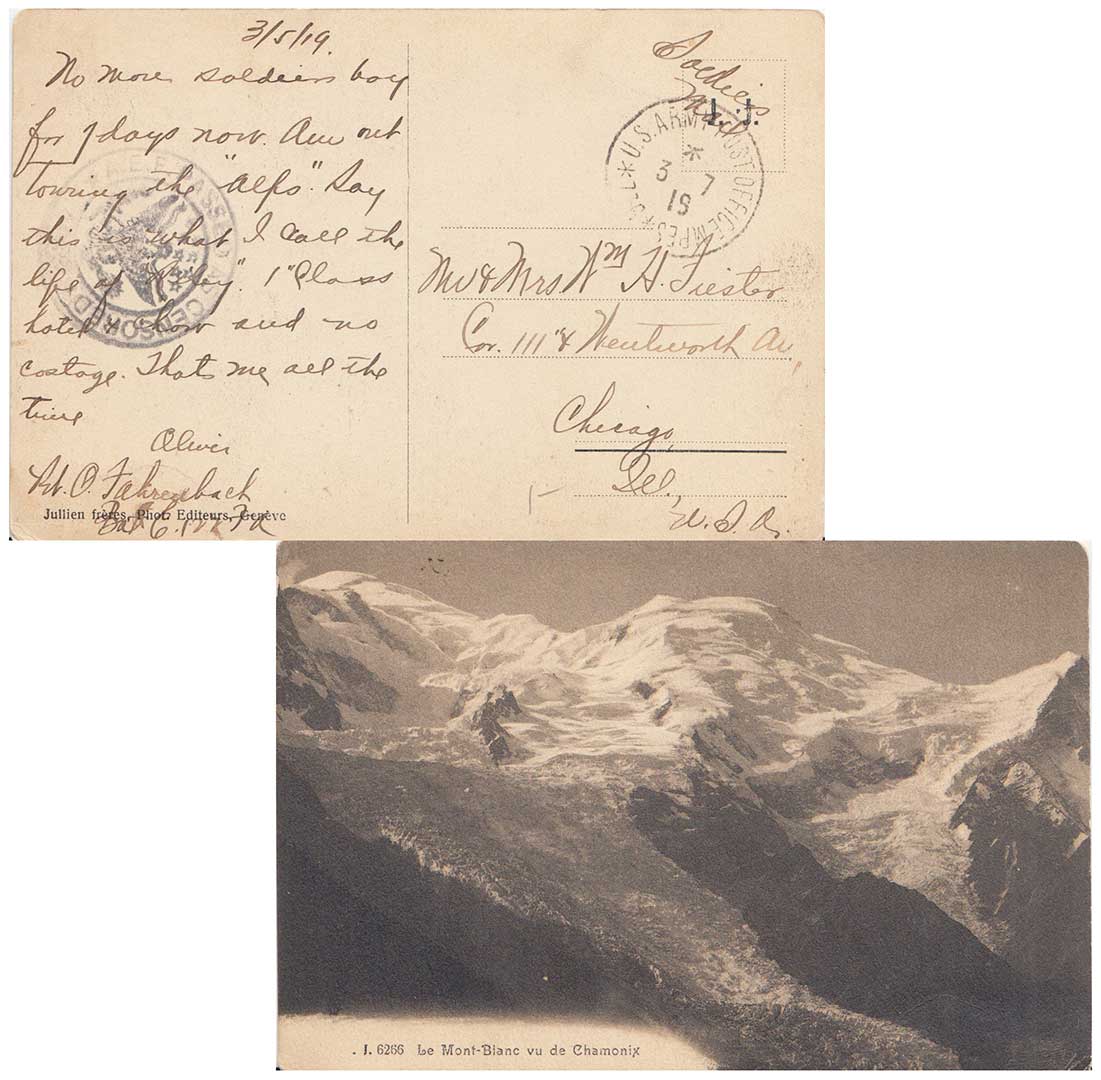 3/5/19.
No more soldiers boy
for 7 days now. Am out
touring the "Alps". Say
this is what I call the
life of "Riley". 1" Class
hotel & chow and no
costage. Thats me all the
time
Oliver
O. Fahrenbach
Jullien frères, Phot. Editeurs, Genève
Bat E.
Soldiers
Mail
J. J.
* U.S. ARMY POST OFFICE M.P.E.S *
3 7
19
A.E.F. PASSED AS CENSORED
Mr & Mrs Wm H. Fiester
Cor. 111 & Wentworth Av,
Chicago,
Ill,
U. S. A.
J. 6266 Le Mont-Blanc vu de Chamonix